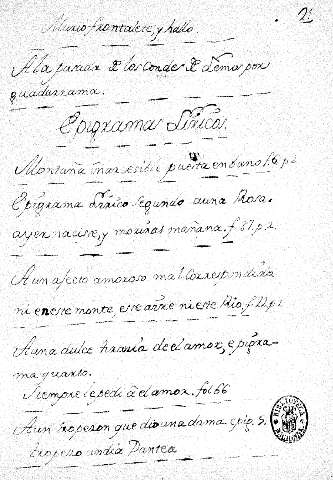 2
Murio frontalete, y hallo.
A la pasar de los Condes de Lemos por
guadarrama.
Epigramas Liricos.
Montaña inaccesible puesta en vano f. 6 p. 2
Epigrama Lirico segundo a una Rosa.
ayer naciste, y moriras mañana. f. 67. p. 2.
A un afecto amoroso mal correspondido
ni en este monte, este ayre ni este Rio. f. 22. p. 2
A una dulce tirania de el amor, epigra-
ma quarto.
Siempre le pedi a el amor. fol. 66
A un tropezon que dio una dama epig. 5.
tropezo un dia Dantea
BIBLIOTECA NACIONAL